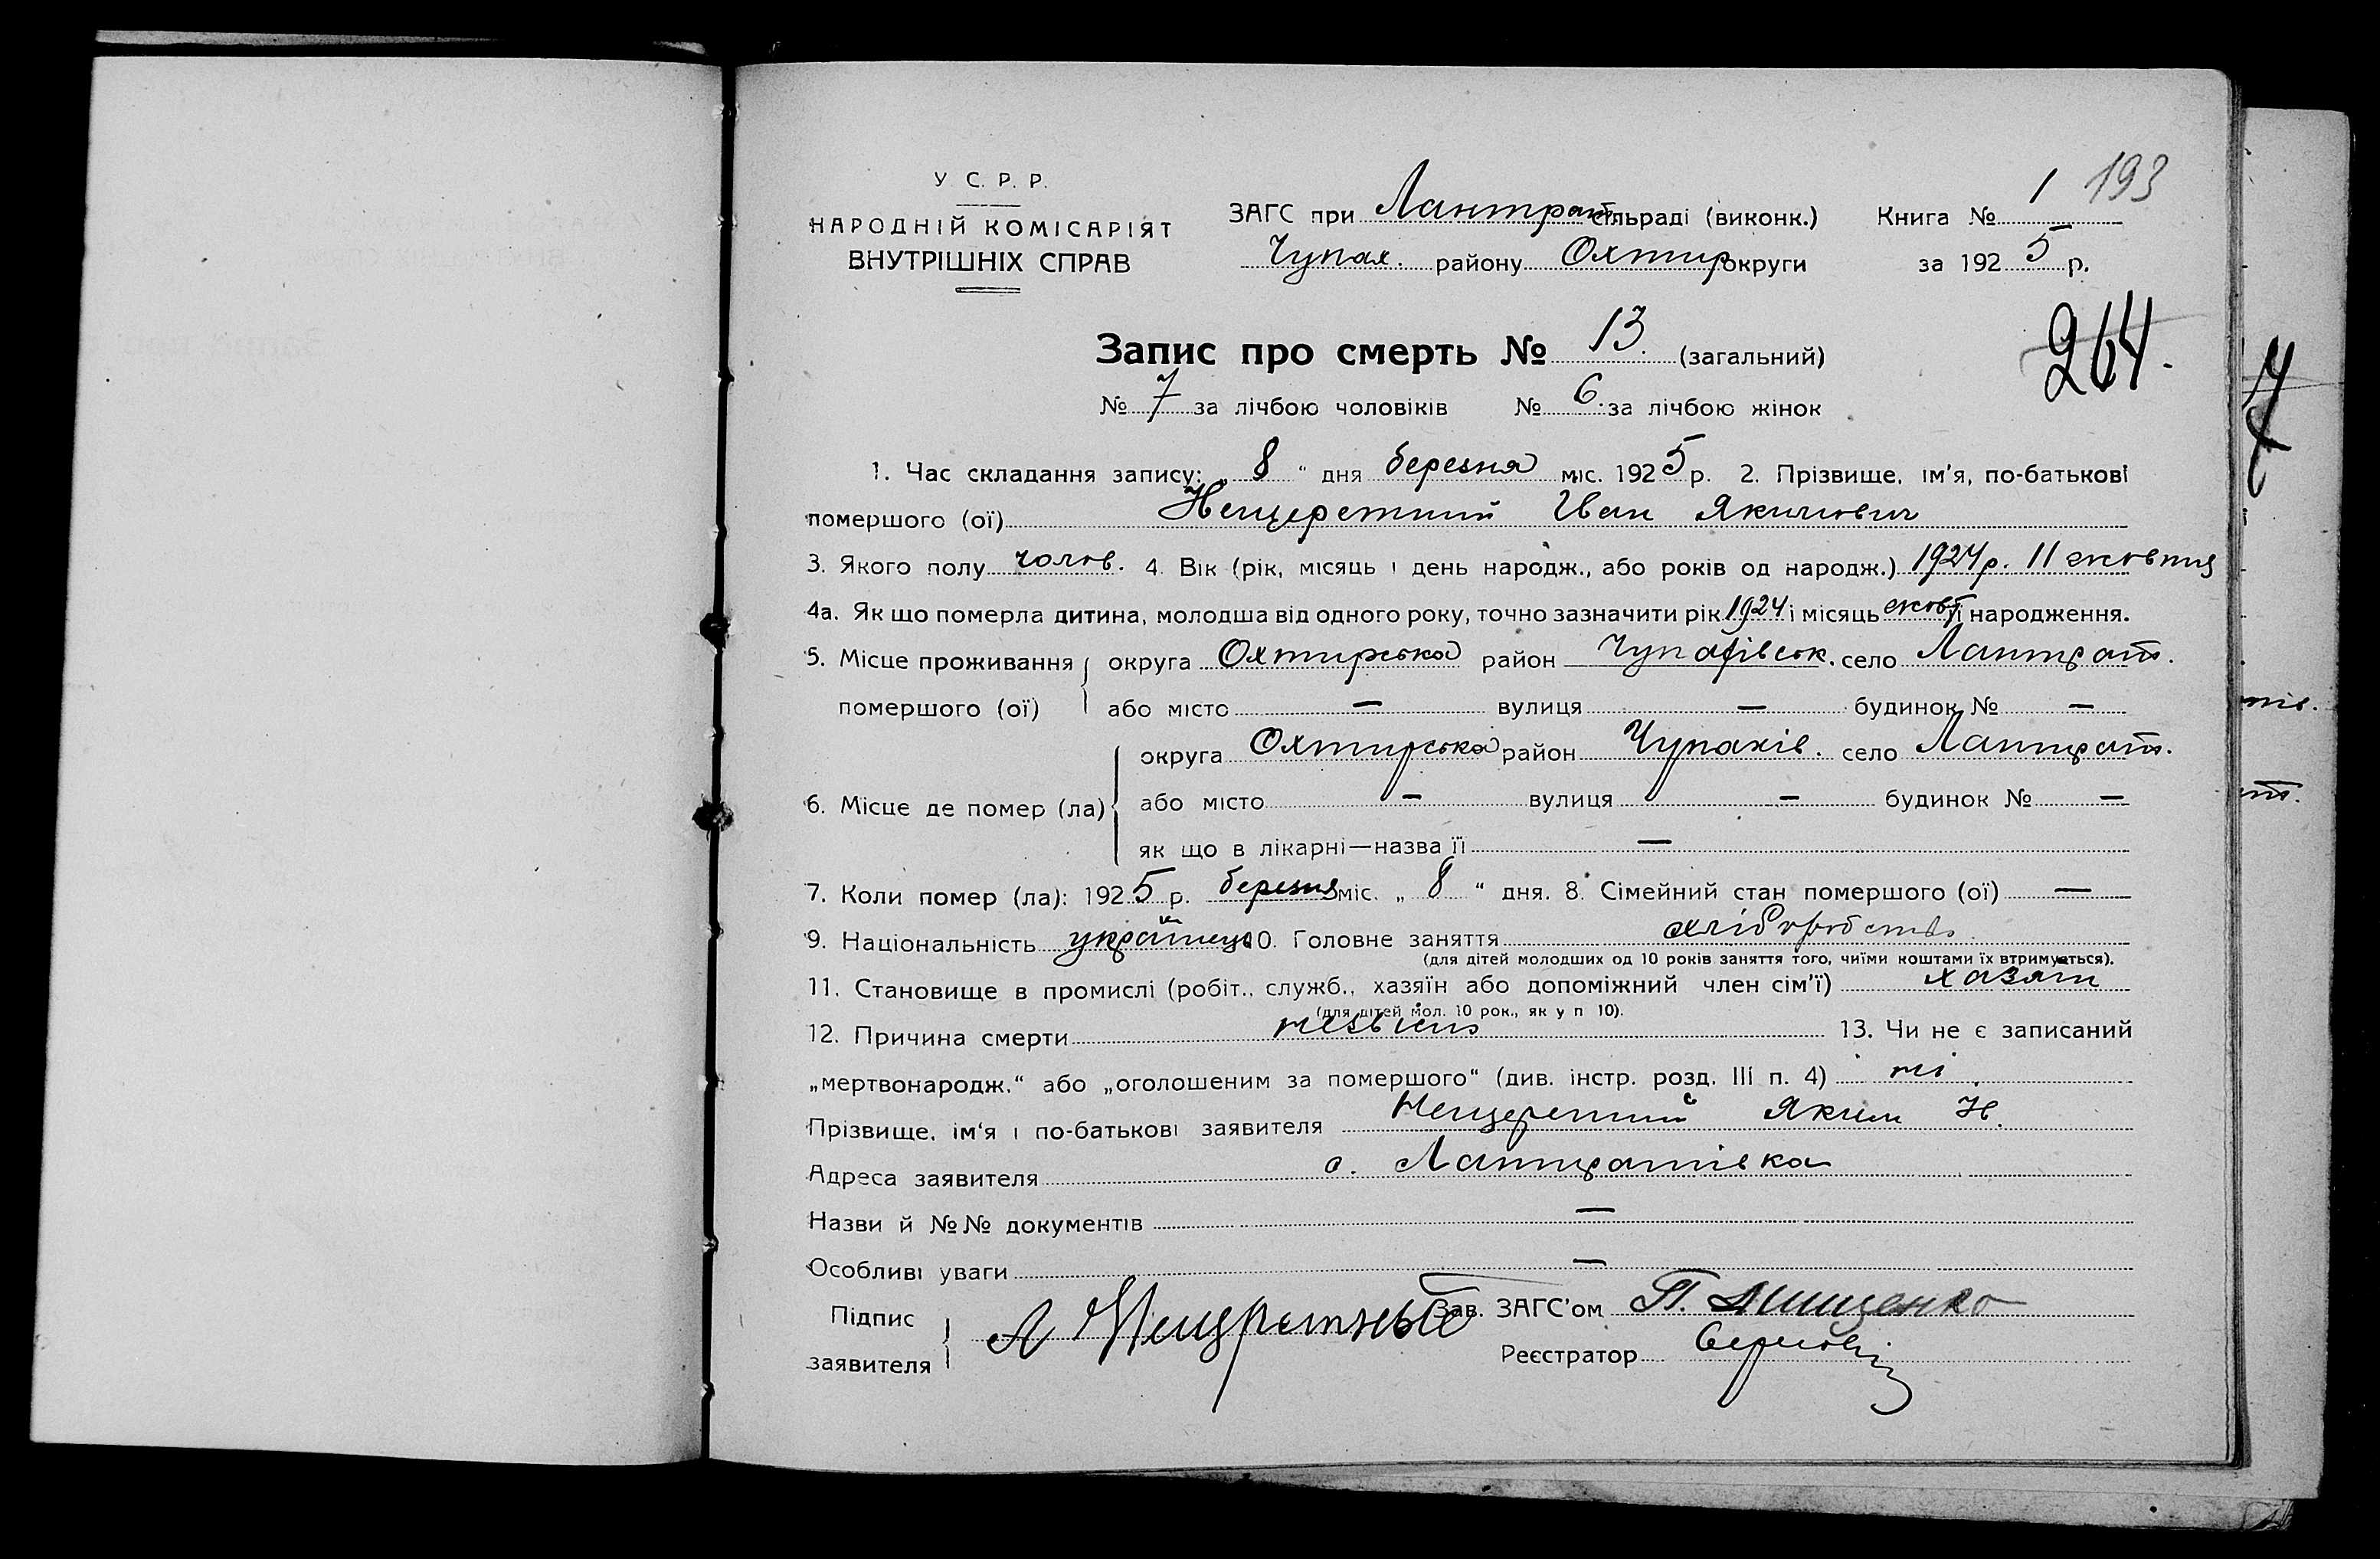 193
У С. Р. Р.
НАРОДНІЙ КОМІСАРІЯТ
ВНУТРІШНІХ СПРАВ
ЗАГС при Лантрат сільраді (виконк.) Книга № 1
Чупах. району Охтир округи за 1925 р.
264.
Запис про смерть № 13. (загальний)
№ 7 за лічбою чоловіків № 6. за лічбою жінок
1. Час складання запису: „ 8 “ дня березня міс. 1925 р. 2. Прізвище, ім'я, по-батькові
помершого (ої) Нещеретний Іван Якимович
3. Якого полу чолов. 4. Вік (рік, місяць і день народж., або років од народж.) 1924 р. 11 жовтня
4а. Як що померла дитина, молодша від одного року, точно зазначити рік 1924 і місяць жовт її народження.
5. Місце проживання округа Охтирська район Чупахівськ. село Лантрат.
помершого (ої) або місто — вулиця — будинок № —
округа Охтирська район Чупахів. село Лантрат.
6. Місце де помер (ла) або місто — вулиця — будинок № —
як що в лікарні—назва її —
7. Коли помер (ла): 1925 р. березня міс. „ 8 “ дня. 8. Сімейний стан помершого (ої) —
9. Національність українець 10. Головне заняття хліборобство
(для дітей молодших од 10 років заняття того, чиїми коштами їх втримується).
11. Становище в промислі (робіт., служб., хазяїн або допоміжний член сім'ї) хазяїн
(для дітей мол. 10 рок., як у п 10).
12. Причина смерти 13. Чи не є записаний
„мертвонародж.“ або „оголошеним за помершого“ (див. інстр. розд. III п. 4) ні
Прізвище, ім'я і по-батькові заявителя Нещеретний Яким Н.
Адреса заявителя с. Лантратівка
Назви й №№ документів —
Особливі уваги —
Підпис заявителя Нещретный Зав. ЗАГС'ом П. Мищенко
Реєстратор